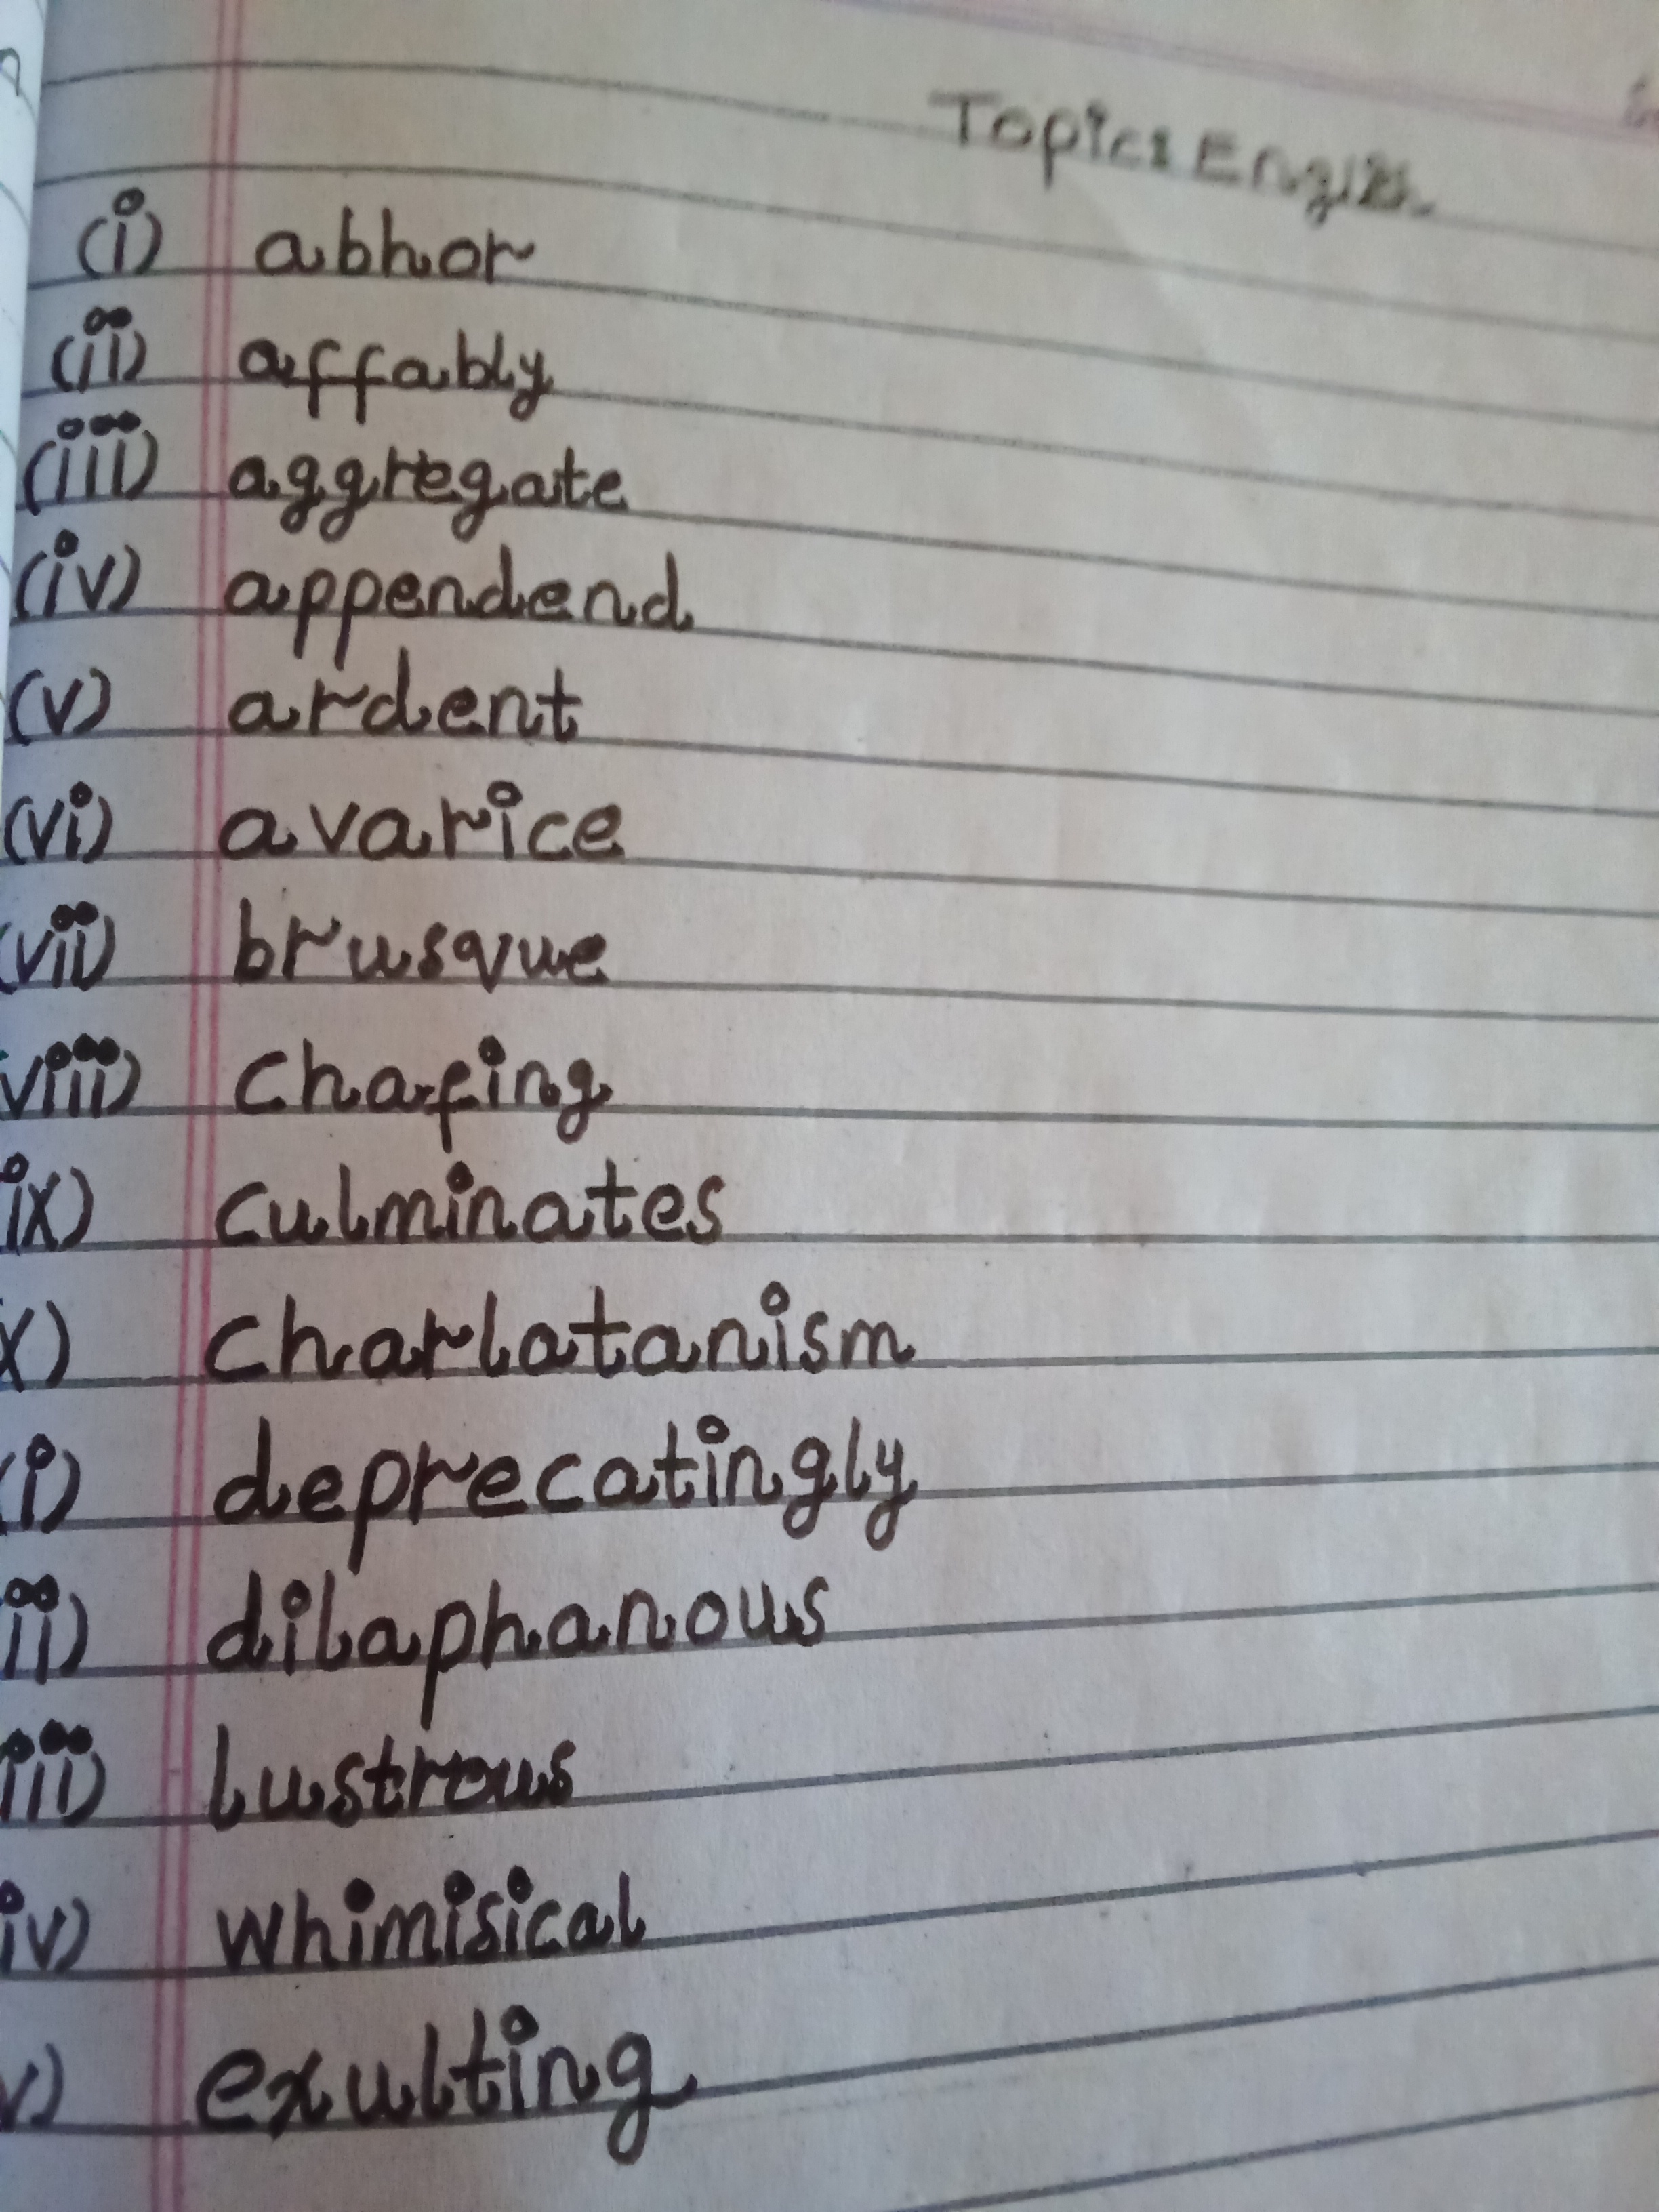 Topics English
(i) abhor
(ii) affably
(iii) aggregate
(iv) appendend
(v) ardent
(vi) avarice
(vii) brusque
viii) chafing
ix) culminates
x) charlatanism
(i) deprecatingly
ii) dilaphanous
iii) lustrous
iv) whimisical
v) exulting